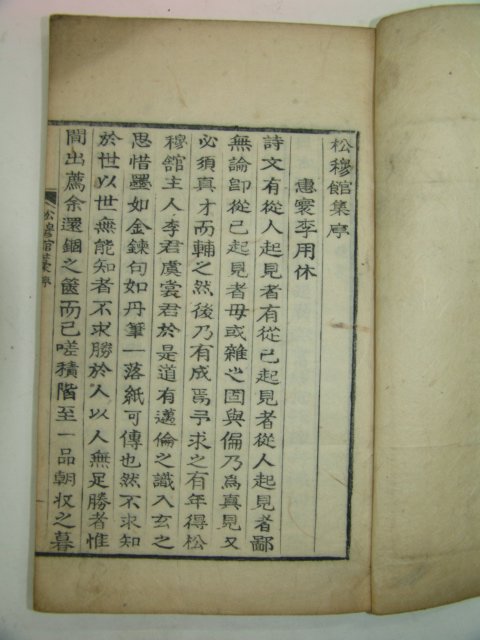 松穆館集序
惠寰李用休
詩文有從人起見者有從己起見者從人起見者鄙
無論卽從己起見者毋或雜之固與偏乃爲真見又
必須真才而輔之然後乃有成焉予求之有年得松
穆館主人李君虞裳君於是道有邁倫之識入玄之
思惜墨如金鍊句如丹筆一落紙可傳也然不求知
於世以世無能知者不求勝於人以人無足勝者惟
間出薦余還錮之篋而已嗟積階至一品朝収之暮
松穆館集序